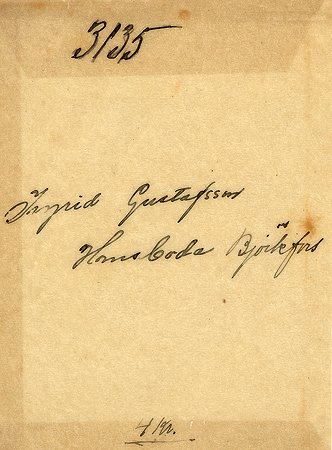 3135
Ingrid Gustafsson
Homsboda Björkfors
4 Kr.